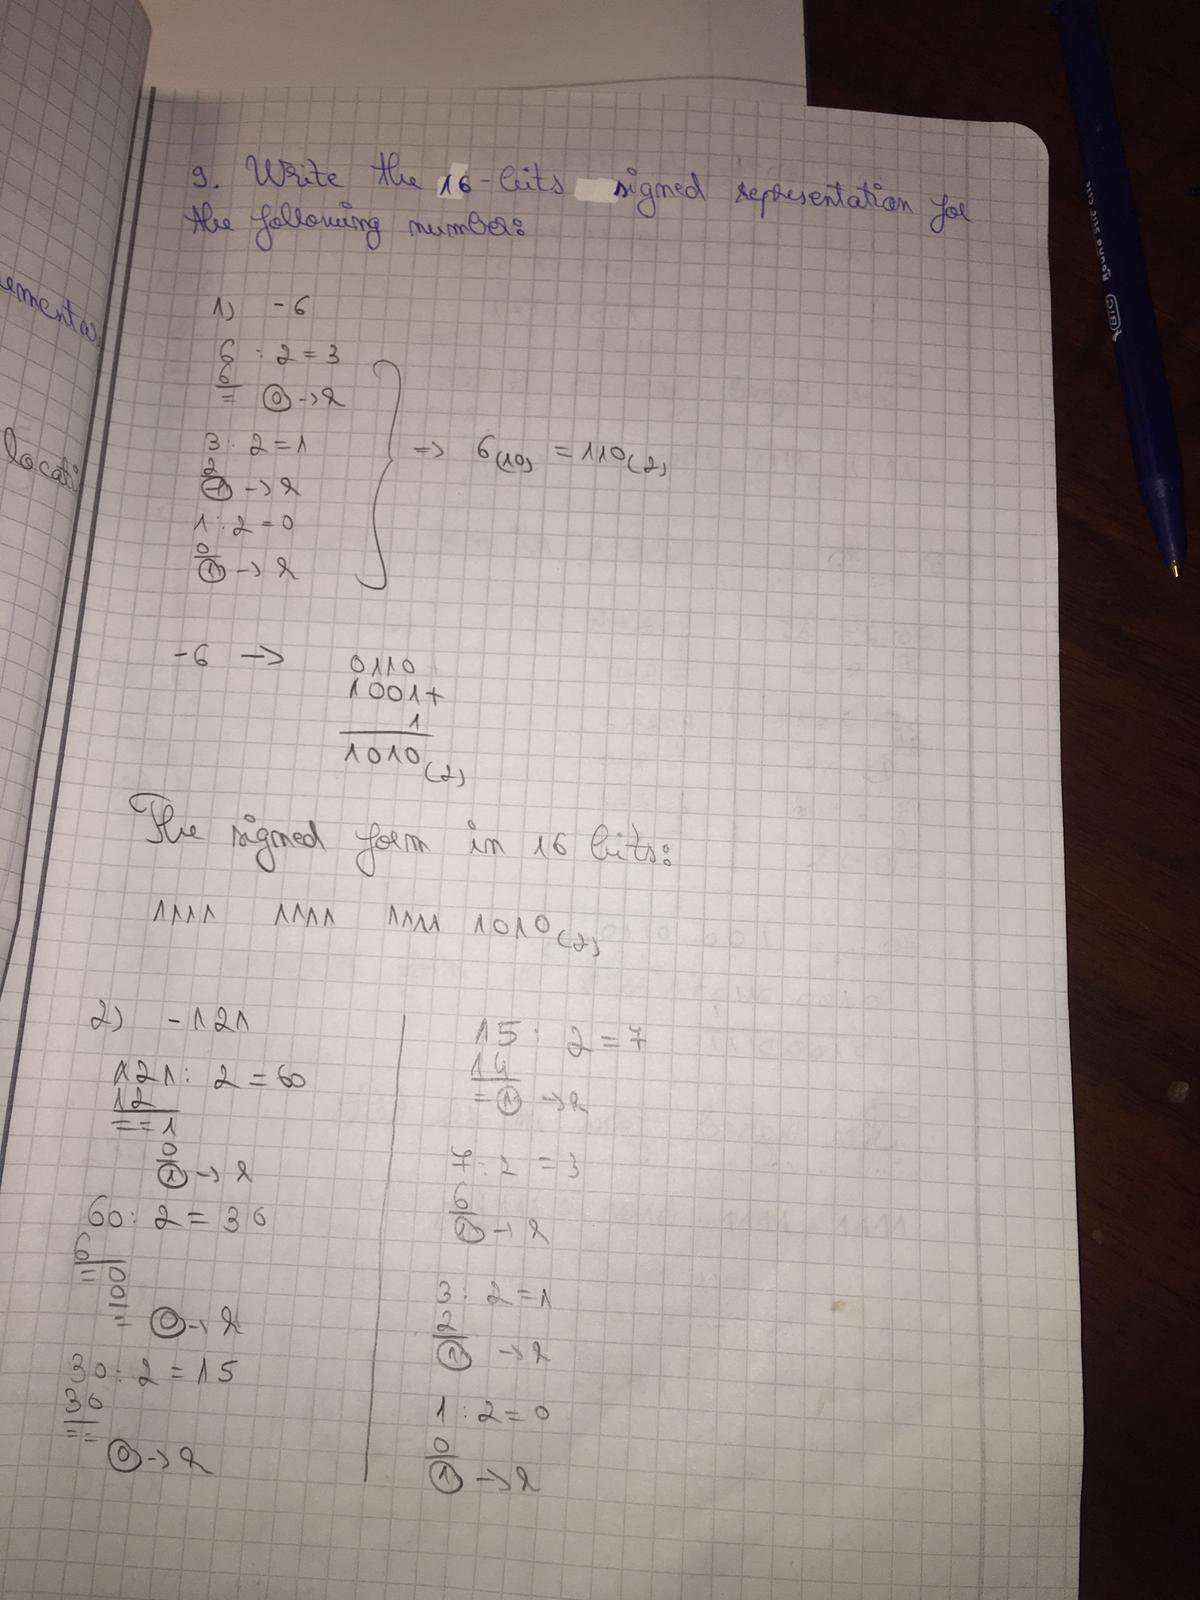 9. Write the 16-bits signed representation for
the following numbers:
1) -6
6 : 2 = 3
6
= 0 -> r
3 : 2 = 1
2
1 -> r
1 : 2 = 0
0
1 -> r
=> 6(10) = 110(2)
-6 -> 0110
1001+
1
1010(2)
The signed form in 16 bits:
1111 1111 1111 1010(2)
2) -121
121 : 2 = 60
12
= = 1
0
1 -> r
60 : 2 = 30
6
= 00
= 0 -> r
30 : 2 = 15
30
= =
0 -> r
15 : 2 = 7
14
= 1 -> r
7 : 2 = 3
6
1 -> r
3 : 2 = 1
2
1 -> r
1 : 2 = 0
0
1 -> r
ementa
locati
BIC